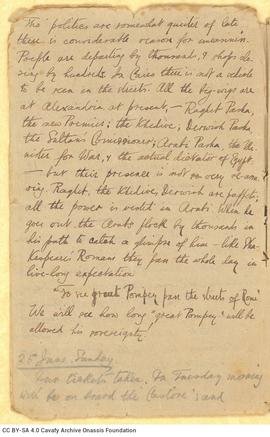 The politics are somewhat quieter of late,
there is considerable reason for uneasiness.
People are departing by thousands, & shops clo-
sing by hundreds. In Cairo there is not a vehicle
to be seen in the streets. All the big-wigs are
at Alexandria at present, — Raghit Pasha,
the new Premier; the Khedive; Derwish Pasha
the Sultan's Comissioner; Arabi Pasha, the Mi-
nister for War, & the actual dictator of Egypt,
— but their presence is not so very re-assu-
ring. Raghit, the Khedive, Derwish are puppets;
all the power is vested in Arabi. When he
goes out the Arabs flock by thousands in
his path to catch a glimpse of him — like Sha-
kesperic Romans they pass the whole day in
live-long expectation
"To see great Pompey pass the streets of Rome"
We will see how long "great Pompey" will be
allowed his sovereignty!
25 June. Sunday
tickets taken. On Tuesday morning
will be on board the Castore; and
CC BY-SA 4.0 Cavafy Archive Onassis Foundation